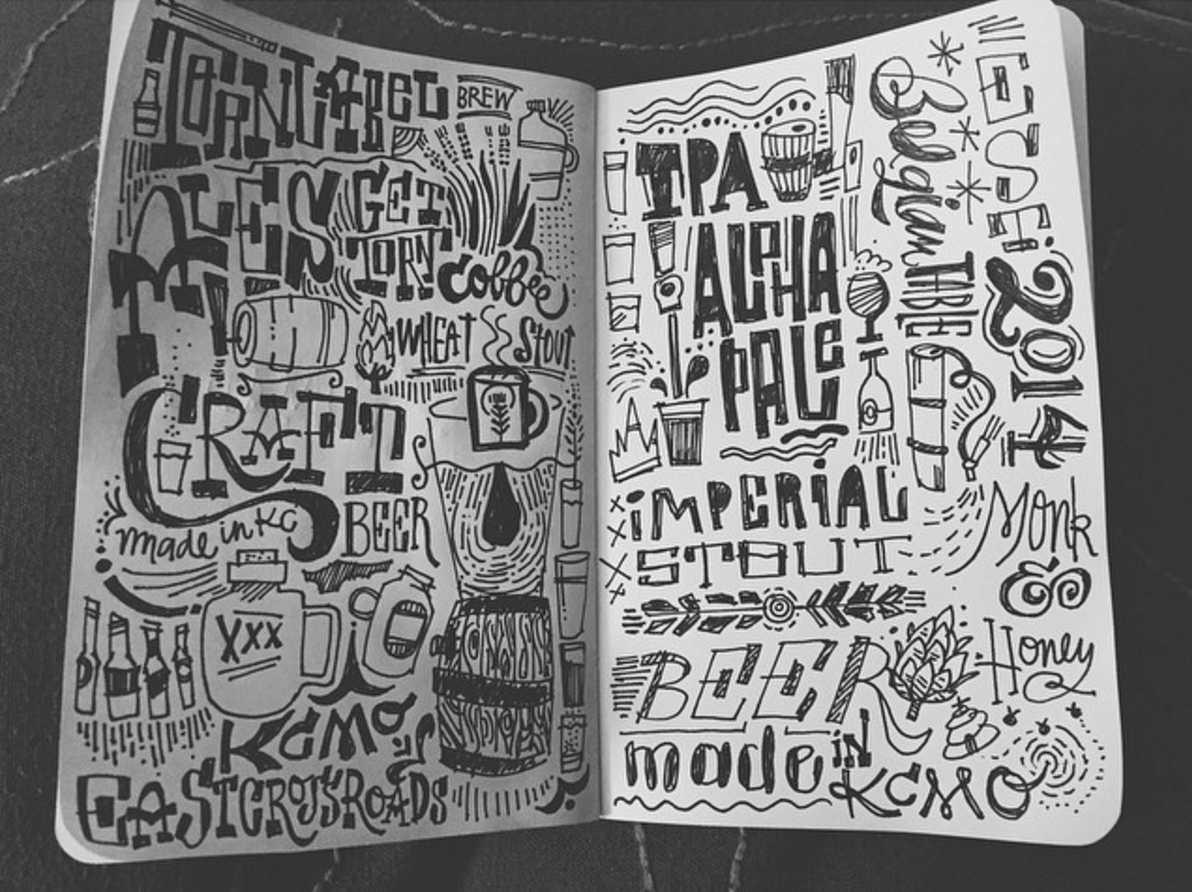 TORN LABEL
BREW
ALES
GET
TORN
Coffee
WHEAT
STOUT
CRAFT
made in KC
BEER
XXX
KCMO
EAST CROSSROADS
IPA
ALPHA
PALE
IMPERIAL
STOUT
BEER
made IN
KCMO
Belgian TABLE
2014
Monk
&
Honey